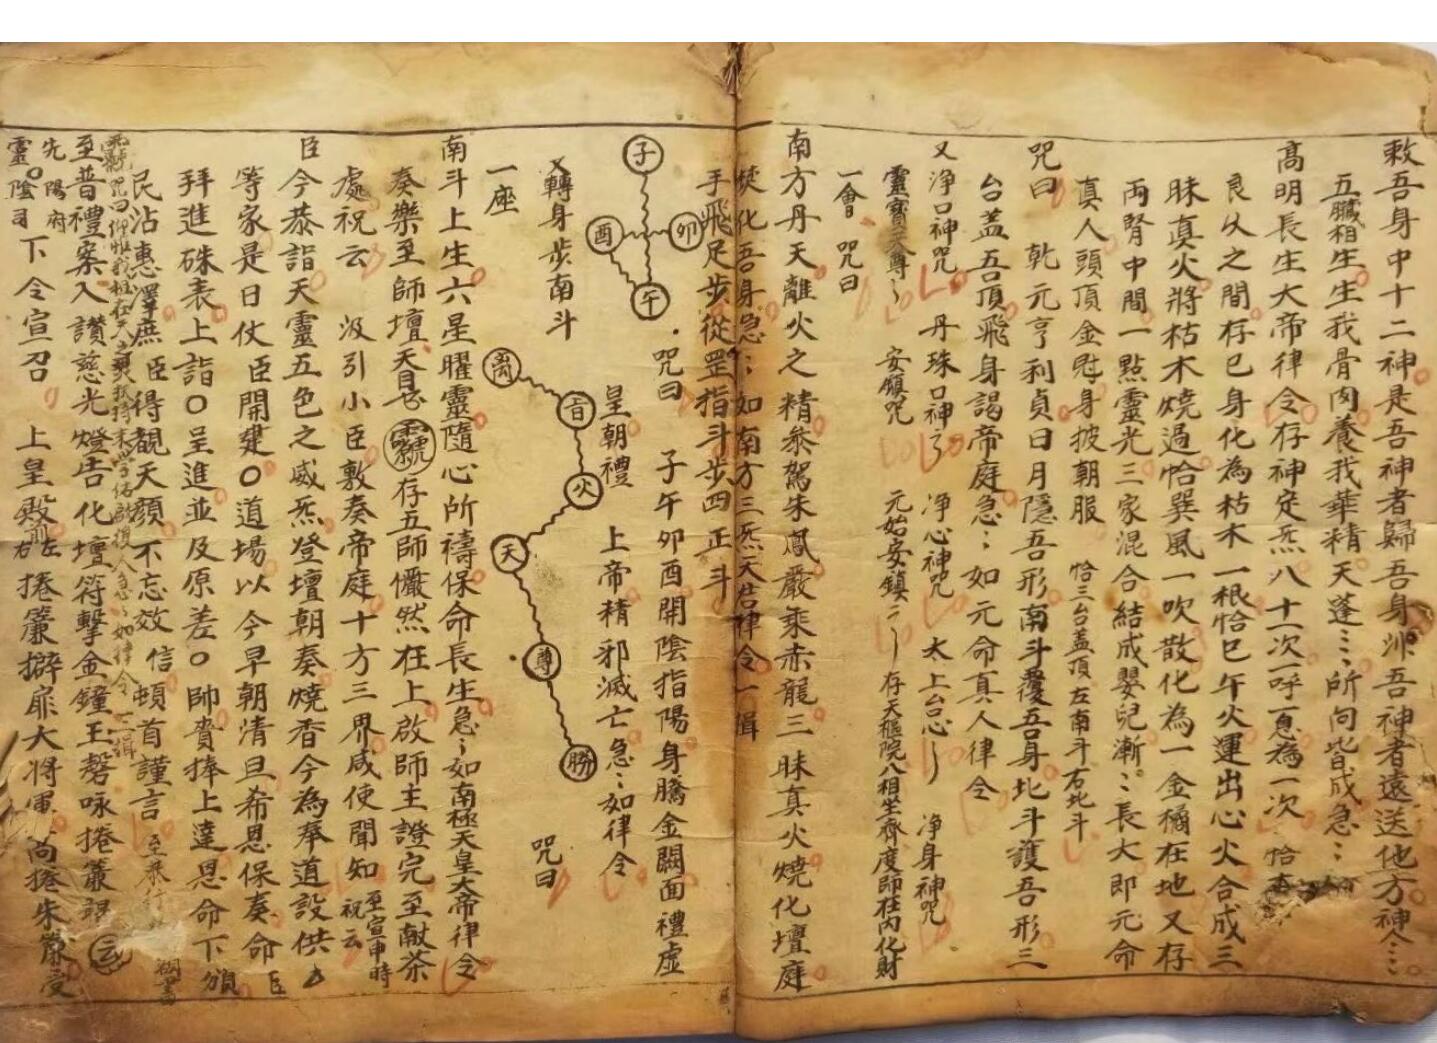 敕吾身中十二神是吾神者歸吾身非吾神者遠送他方神人〻〻
五臟相生生我骨肉養我華精天蓬〻〻所向皆成急〻
高明長生大帝律令存神定炁八十一次一呼一息為一次 恰
良久之間存巳身化為枯木一根恰巳午火運出心火合成三
昧真火將枯木燒過恰巽風一吹散化為一金橘在地又存
両腎中間一點靈光三家混合結成嬰兒漸〻長大即元命
真人頭頂金冠身披朝服 恰三台蓋頂左南斗右北斗
咒曰 乾元亨利貞日月隱吾形南斗覆吾身北斗護吾形三
台盖吾頂飛身謁帝庭急〻如元命真人律令
又淨口神咒 丹珠口神〻 净心神咒 太上台心〻 净身神咒
靈寶天尊〻 安鎮咒 元始安鎮〻 存天樞院八相坐齊度師在内化財
一會 咒曰
南方丹天離火之精叅駕朱鳳嚴乘赤龍三昧真火燒化壇庭
焚化吾身急〻如南方三炁天君律令一揖
手飛足步從罡指斗步四正斗
子 酉 卯 午
咒曰 子午卯酉開陰指陽身騰金闕面禮虛
皇朝禮 上帝精邪滅亡急〻如律令
又轉身步南斗 咒曰
一座
离 音 火 天 尊 勝
南斗上生六星曜靈隨心所禱保命長生急〻如南極天皇大帝律令
奏樂至師壇存五師儼然在上啟師主證完至献茶
處祝云 汲引小臣敷奏帝庭十方三界咸使聞知 至宣申時祝云
臣今恭詣天靈五色之威炁登壇朝奏燒香今為奉道設供
等家是日仗臣開建〇道場以今早朝清旦希恩保奏命臣
拜進硃表上詣〇呈進並及原差〇帥賫捧上達恩命下頒
民沾惠澤庶臣得觀天顏不忘效信頓首謹言
至普禮案入讃慈光燈告化壇符擊金鐘玉磬咏捲簾
先陽府
靈〇陰司 下令宣召 上皇殿前左右捲簾擗扉大將軍尚捲朱簾受